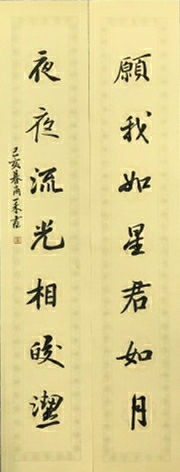 願我如星君如月
夜夜流光相皎潔
己亥春月一禾書